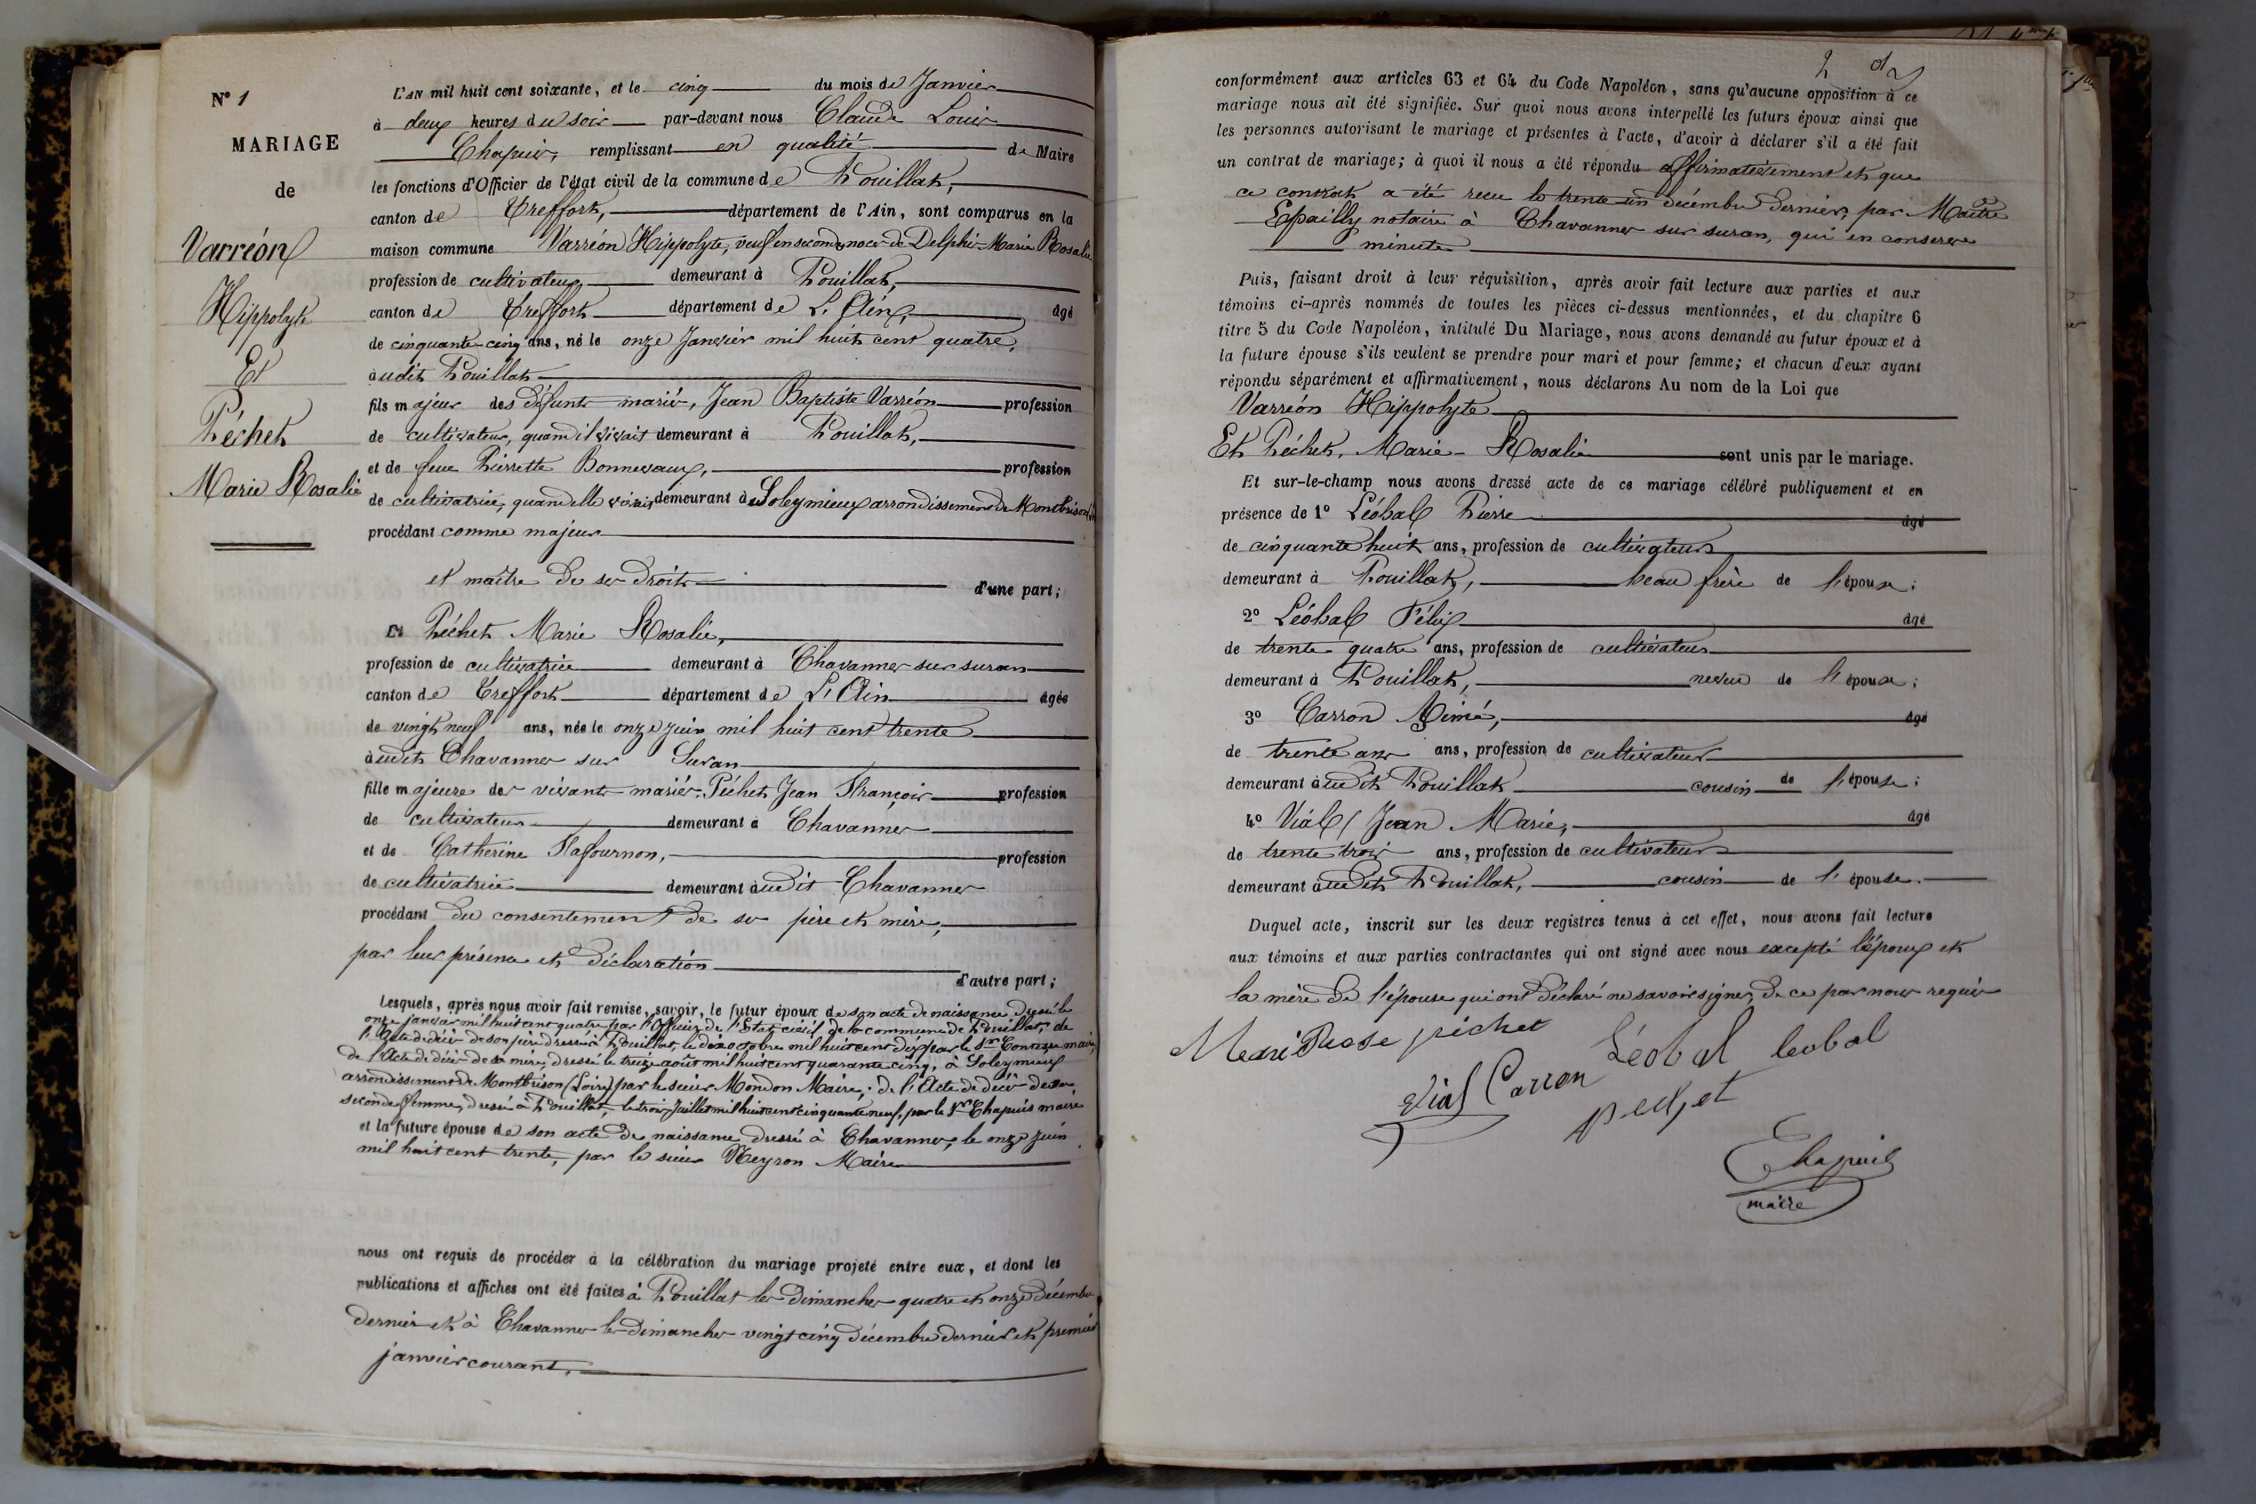 N° 1
MARIAGE
de
Varréon
Hippolyte
Et
Péchet
Marie Rosalie
L'AN mil huit cent soixante, et le cinq du mois de Janvier
à deux heures du soir par-devant nous Claude Louis
Chapuis, remplissant en qualité de Maire
les fonctions d'Officier de l'état civil de la commune de Pouillat,
canton de Treffort, département de l'Ain, sont comparus en la
maison commune Varréon Hippolyte, veuf en secondes noces de Delphi Marie Rosalie
profession de cultivateur demeurant à Pouillat,
canton de Treffort département de L'Ain, âgé
de cinquante-cinq ans, né le onze Janvier mil huit cent quatre,
audit Pouillat
fils majeur des défunts mariés, Jean Baptiste Varréon profession
de cultivateur, quand il vivait demeurant à Pouillat,
et de feue Pierrette Bonnevaux, profession
de cultivatrice, quand elle vivait demeurant à Soleymieux arrondissement de Montbrison
procédant comme majeur
et maître de ses droits d'une part;
Et Péchet Marie Rosalie,
profession de cultivatrice demeurant à Chavannes sur suran
canton de Treffort département de L'Ain âgée
de vingt neuf ans, née le onze juin mil huit cent trente
audit Chavannes sur Suran
fille majeure des vivants mariés Péchet Jean François profession
de cultivateur demeurant à Chavannes
et de Catherine Lafournon, profession
de cultivatrice demeurant audit Chavannes
procédant du consentement de ses père et mère,
par leur présence et déclaration d'autre part;
Lesquels, après nous avoir fait remise, savoir, le futur époux de son acte de naissance dressé le
onze janvier mil huit cent quatre par l'Officier de l'Etat civil de la commune de Pouillat, de
l'Acte de décès de son père dressé à Pouillat, le dix octobre mil huit cent dix par le Sr maire,
de l'Acte de décès de sa mère, dressé le treize août mil huit cent quarante cinq, à Soleymieux
arrondissement de Montbrison (Loire) par le sieur Mondon Maire; de l'Acte de décès de sa
seconde femme, dressé à Pouillat, le trois Juillet mil huit cent cinquante neuf, par le Sr Chapuis maire
et la future épouse de son acte de naissance dressé à Chavannes, le onze juin
mil huit cent trente, par le sieur Neyron Maire
nous ont requis de procéder à la célébration du mariage projeté entre eux, et dont les
publications et affiches ont été faites à Pouillat les dimanches quatre et onze décembre
dernier et à Chavannes les dimanches vingt cinq décembre dernier et premier
janvier courant,
2
conformément aux articles 63 et 64 du Code Napoléon, sans qu'aucune opposition à ce
mariage nous ait été signifiée. Sur quoi nous avons interpellé les futurs époux ainsi que
les personnes autorisant le mariage et présentes à l'acte, d'avoir à déclarer s'il a été fait
un contrat de mariage; à quoi il nous a été répondu affirmativement et que
ce contrat a été reçu le trente un décembre dernier, par Maître
Epailly notaire à Chavannes sur suran, qui en conserve
minute
Puis, faisant droit à leur réquisition, après avoir fait lecture aux parties et aux
témoins ci-après nommés de toutes les pièces ci-dessus mentionnées, et du chapitre 6
titre 5 du Code Napoléon, intitulé Du Mariage, nous avons demandé au futur époux et à
la future épouse s'ils veulent se prendre pour mari et pour femme; et chacun d'eux ayant
répondu séparément et affirmativement, nous déclarons Au nom de la Loi que
Varréon Hippolyte
Et Péchet, Marie-Rosalie sont unis par le mariage.
Et sur-le-champ nous avons dressé acte de ce mariage célébré publiquement et en
présence de 1° Léobal Pierre âgé
de cinquante huit ans, profession de cultivateur
demeurant à Pouillat, beau frère de l'épouse;
2° Léobal Félix âgé
de trente quatre ans, profession de cultivateur
demeurant à Pouillat, neveu de l'épouse;
3° Carron Aimé, âgé
de trente ans ans, profession de cultivateur
demeurant audit Pouillat cousin de l'épouse;
4° Vial Jean Marie, âgé
de trente trois ans, profession de cultivateur
demeurant audit Pouillat, cousin de l'épouse.
Duquel acte, inscrit sur les deux registres tenus à cet effet, nous avons fait lecture
aux témoins et aux parties contractantes qui ont signé avec nous excepté l'époux et
la mère de l'épouse qui ont déclaré ne savoir signer, de ce par nous requis
Marie Rose pichet
Léobal leobal
Vial Carron
pechet
Chapuis
maire